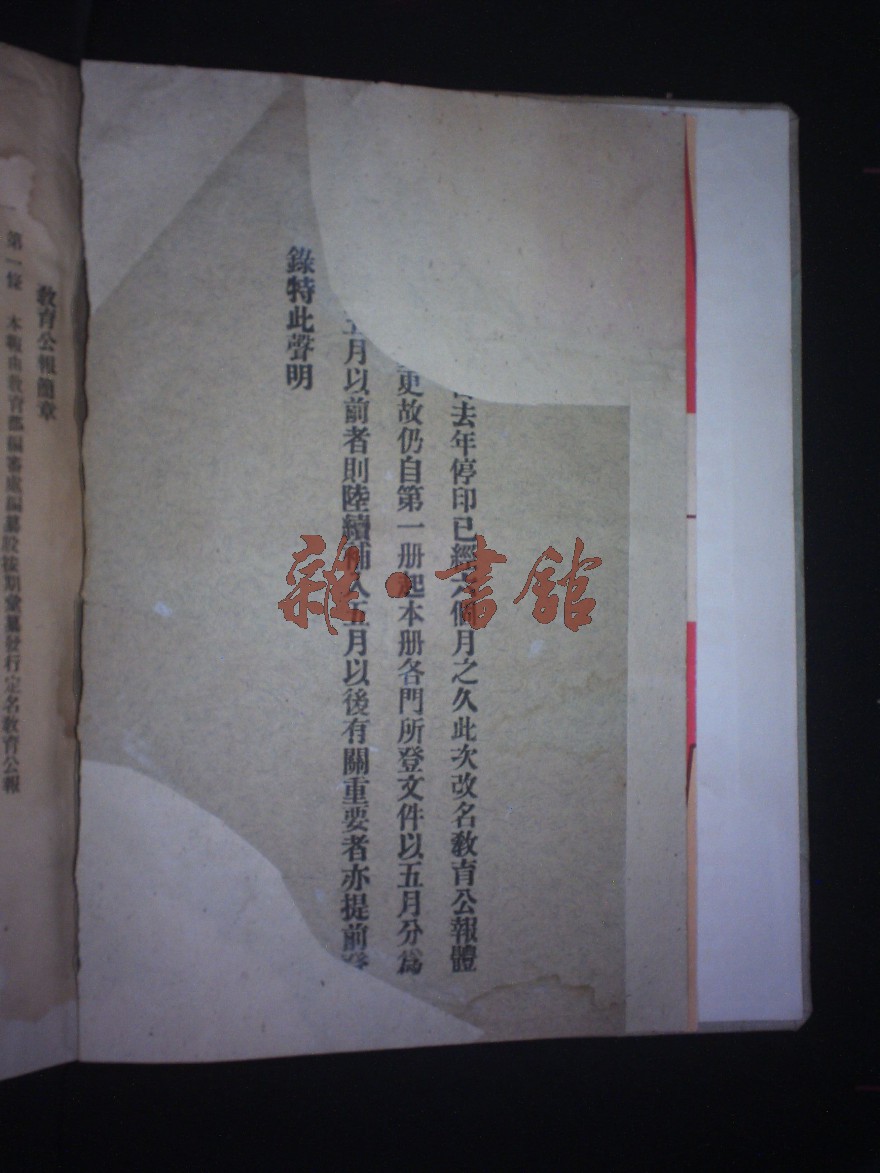 去年停印已經六個月之久此次改名教育公報體
更故仍自第一册起本册各門所登文件以五月分爲
五月以前者則陸續補入五月以後有關重要者亦提前登
錄特此聲明
教育公報簡章
第一條　本報由教育部編審處編纂股按期彙纂發行定名教育公報
雜·書館